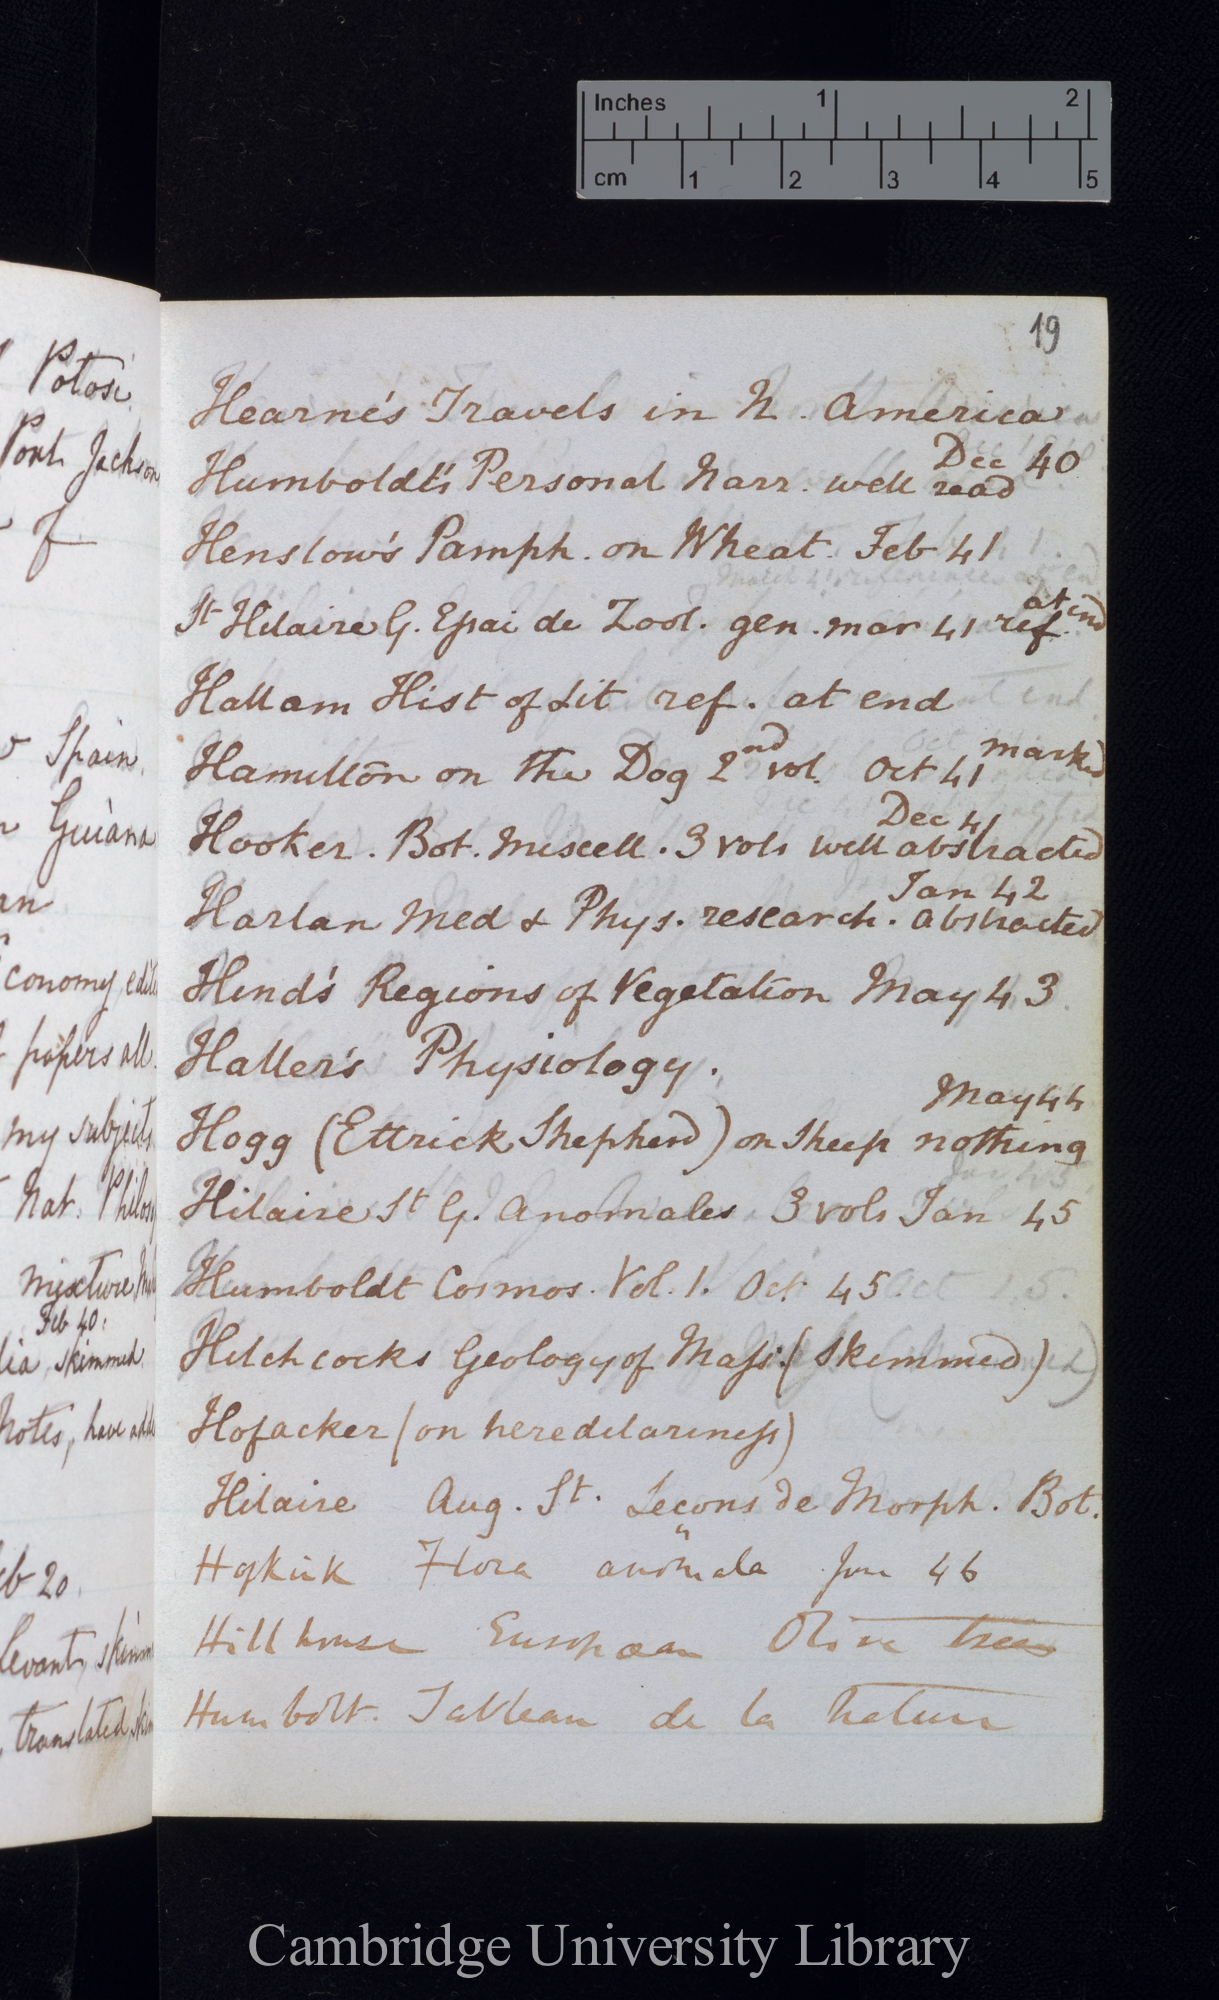 Inches 1 2
cm 1 2 3 4 5
Potosi
Port Jackson
of
Spain.
Guiana
an
Economy, edit
papers all
my subjects
Nat. Philos
Mixture
Feb 40.
skimmed
Notes, have add
20.
Levant, skimm
translated
19
Hearne's Travels in N. America
Humboldt's Personal Narr. well read Dec 40
Henslow's Pamph. on Wheat. Feb 41
St Hilaire G. Essai de Zool. gen. mar 41 ref. at end
Hallam Hist of Lit ref. at end
Hamilton on the Dog 2nd vol. Oct 41 marked
Hooker. Bot. Miscell. 3 vols well abstracted Dec 41
Harlan Med & Phys. research. abstracted Jan 42
Hind's Regions of Vegetation May 43
Haller's Physiology.
Hogg (Ettrick Shepherd) on Sheep nothing May 44
Hilaire St G. Anomales 3 vols Jan 45
Humboldt Cosmos. Vol. 1. Oct 45
Hitchcocks Geology of Mass: (skimmed)
Hofacker (on hereditariness)
Hilaire Aug. St. Lecons de Morph. Bot.
Flora anomala 46
Hillhouse European Olive trees
Humbolt. Tableau de la Nature
Cambridge University Library